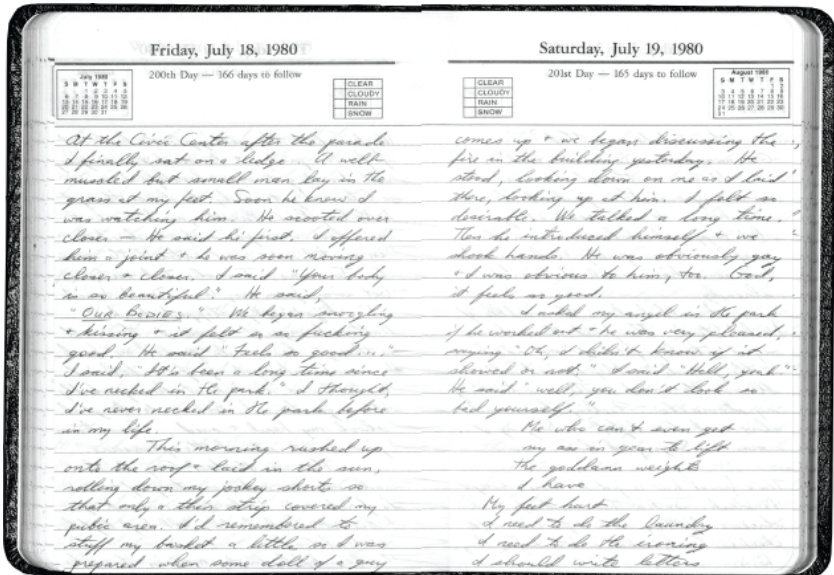 Friday, July 18, 1980
200th Day — 166 days to follow
July 1980
S M T W T F S
1 2 3 4 5
6 7 8 9 10 11 12
13 14 15 16 17 18 19
20 21 22 23 24 25 26
27 28 29 30 31
CLEAR
CLOUDY
RAIN
SNOW
At the Civic Center after the parade
I finally sat on a ledge. A well
muscled but small man lay in the
grass at my feet. Soon he knew I
was watching him. He scooted over
closer — He said hi first. I offered
him a joint + he was soon moving
closer + closer. I said "Your body
is so beautiful." He said,
"OUR BODIES." We began snuggling
+ kissing + it felt so fucking
good. He said "Feels so good...."
I said, "It's been a long time since
I've necked in the park." I thought,
I've never necked in the park before
in my life.
This morning rushed up
onto the roof + laid in the sun,
rolling down my jockey shorts so
that only a thin strip covered my
pubic area. I'd remembered to
stuff my basket a little so I was
prepared when some doll of a guy
Saturday, July 19, 1980
201st Day — 165 days to follow
CLEAR
CLOUDY
RAIN
SNOW
August 1980
S M T W T F S
1 2
3 4 5 6 7 8 9
10 11 12 13 14 15 16
17 18 19 20 21 22 23
24 25 26 27 28 29 30
31
comes up + we began discussing the
fire in the building yesterday. He
stood, looking down on me as I laid
there, looking up at him. I felt so
desirable. We talked a long time.
Then he introduced himself + we
shook hands. He was obviously gay
+ I was obvious to him, too. God,
it feels so good.
I asked my angel in the park
if he worked out + he was very pleased,
saying "Oh, I didn't know if it
showed or not." I said "Hell, yeah."
He said "well, you don't look so
bad yourself."
Me who can't even get
my ass in gear to lift
the goddamn weights
I have
My feet hurt
I need to do the laundry
I need to do the ironing
I should write letters